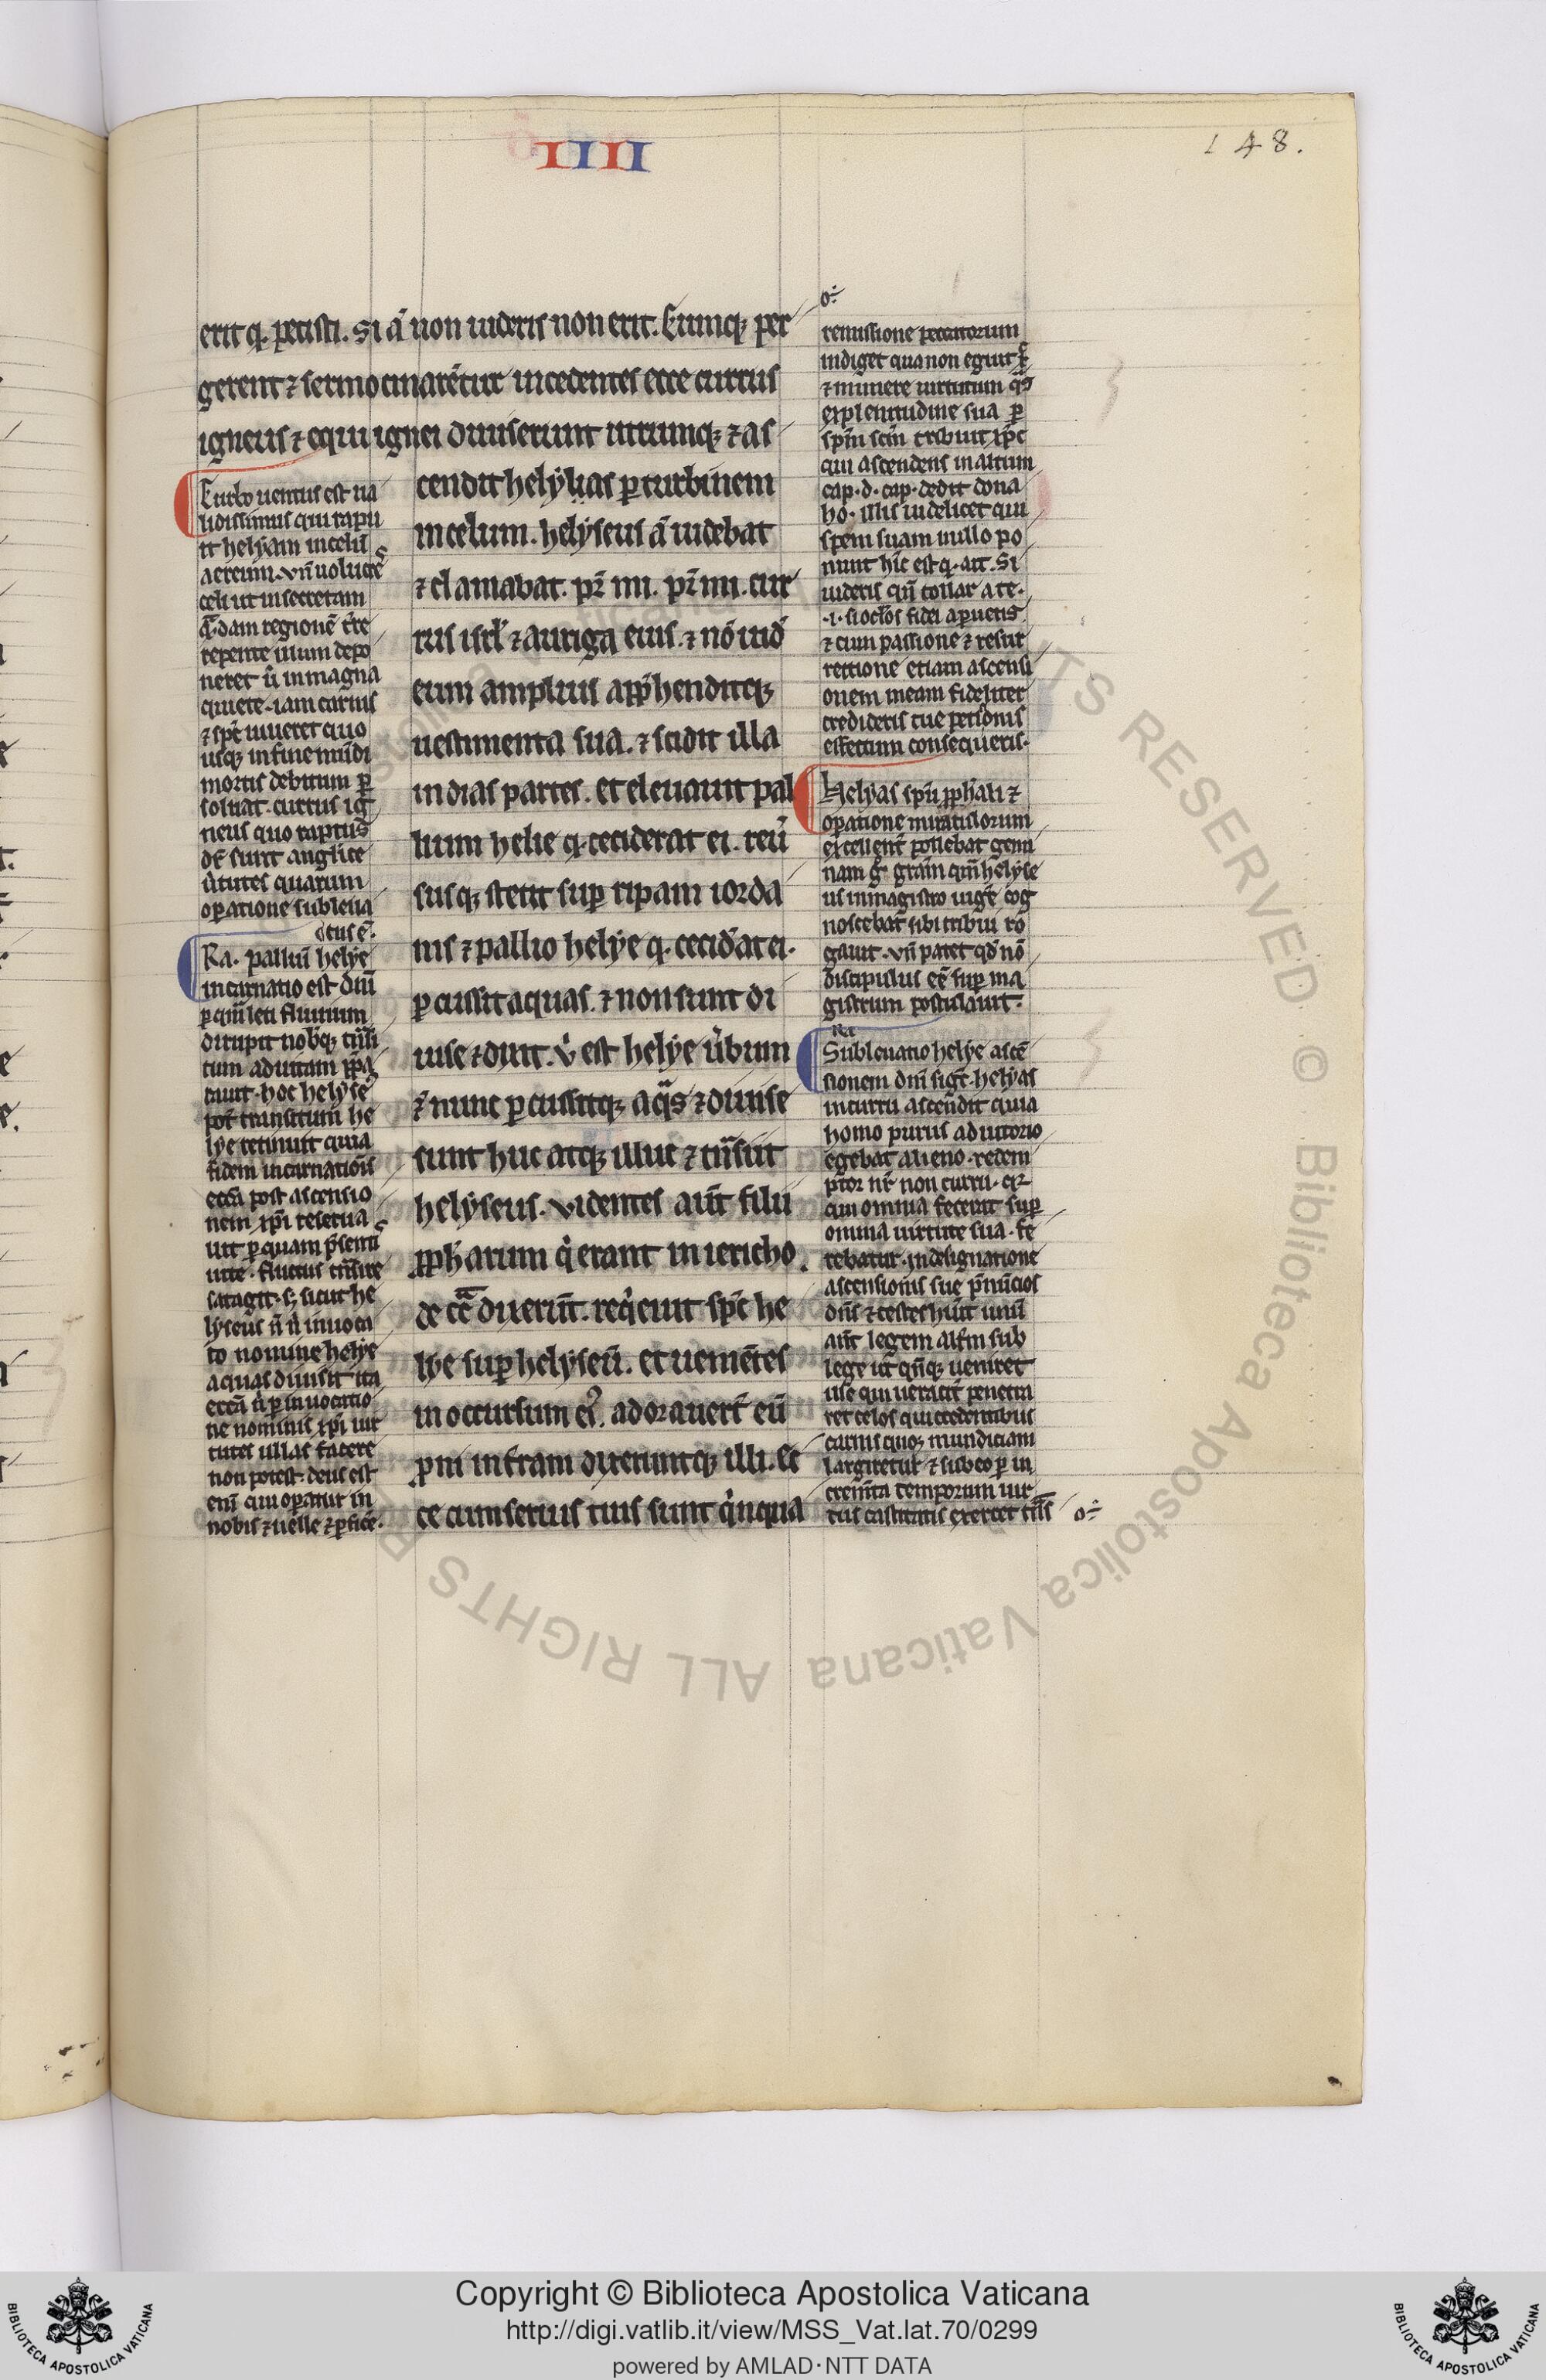 IIII
148.
erit q. petisti. Si aͫ non uideris non erit. Cumq; per
gerent ⁊ sermocinarẽtur incedentes ecce currus
igneus ⁊ equi ignei diuiserunt utrumq; ⁊ as
cendit helyas ꝑ turbinem
in celum. helyseus aͫ uidebat
⁊ clamabat. pr̃ mi. pr̃ mi. cur
rus isrl̃ ⁊ auriga eius. ⁊ nõ uid̃
eum amplius app̃henditq;
uestimenta sua. ⁊ scidit illa
in duas partes. et eleuauit pal
lium helie q. ceciderat ei. reũ
susq; stetit suꝑ ripam iorda
nis ⁊ pallio helye q. cecid̃at ei.
ꝑcussit aquas. ⁊ non sunt di
uise ⁊ dixit. v̉ est helye d̃s
⁊̃ nunc ꝑcussitq; aq̃s ⁊ diuise
sunt huc atq; illuc ⁊ tñsiit
helyseus. videntes aut̃ filii
ꝓph̃arum q̉ erant in iericho
de cͣ̃ dixerũt. req̉euit sp̃c he
lye suꝑ helyseũ. et ueniẽtes
in occursum ei᷒. adorauert̃ eũ
ꝓni in t̃ram dixeruntq; illi. Ec
ce cum seruis tuis sunt q̉nqua
Turbo uentus est ua
lidissimus qui rapu
it helyam in celũ
aereum. vñ uolucr̃es
celi ut in secretam
q̃dam regionẽ t̃re
repente illum depo
neret ũ in magna
quiete. iam carnis
⁊ sp̃c uiueret quo
usq; in fine mũdi
mortis debitum ꝑ
soluat. currus ig
neus quo raptus
d̃r sunt anglice
ũtutes quarum
oꝑatione subleua
ctus ẽ.
Ra. palliũ helye
incarnatio est dñi
ꝑ qũ leti fluuium
dirupit nob̃q; tñsi
tum ad uitam p̃pa
rauit. hoc helyse᷒
post transitum he
lye retinuit quia
fidem incarnatiõis
eccã post ascensio
nem xp̃i reserua
uit ꝑ quam p̃sentis
uite. fluctus tñsire
satagit. s; sicut he
lyseus ñ ñ inuoca
to nomine helye
aquas diuisit ita
eccã ñ ꝑ inuocatio
ne nominis xp̃i uir
tutes ullas facere
non potest. deus est
enĩ qui oꝑatur in
nobis ⁊ uelle ⁊ ꝑfice.
o÷
remissione peccatorum
indiget qua non eguit xp̃c
⁊ munere uirtutum q̃s
ex plenitudine sua ꝑ
sp̃m scm̃ tribuit xp̃c
qui ascendens in altum
cap. d. cap. dedit dona
ho. illis uidelicet qui
spem suam in illo po
nunt hĩc est q. ait. Si
uideris qñ tollar a te.
.i. si oculos fidei aꝑueris
⁊ cum passione ⁊ resur
rectione etiam ascensi
onem meam fideliter
credideris tue petitionis
effectum consequeris.
Helyas spũ ꝓph̃ali ⁊
oꝑatione miraculorum
excellent̃ pollebat gemi
nam g̃ gratiam qũ helyse
us in magistro uigẽ cog
noscebat sibi tribui ro
gauit. vñ patet qd̃ nõ
discipulus eẽ suꝑ ma
gistrum postulauit.
Ra
Subleuatio helye ascẽ
sionem dñi siḡt. helyas
in curru ascendit quia
homo purus adiutorio
egebat alieno. redem
ptor nr̃ non curru. qr
qui omnia fecerat suꝑ
omnia uirtute sua. fe
rebatur. in designatione
ascensionis sue p̃nũcios
dñs ⁊ testes hũit unũ
aut̃ legem alt̃m sub
lege ut qñq; ueniret
ipse qui ueracit̃ penetra
ret celos qui credentibus
carnis quoq; mundiciam
largiretur ⁊ sub eo ꝑ in
crem̃ta temporum uir
tus castitatis exercet
o÷
Copyright © Biblioteca Apostolica Vaticana
http://digi.vatlib.it/view/MSS_Vat.lat.70/0299
powered by AMLAD·NTT DATA
BIBLIOTECA APOSTOLICA VATICANA
BIBLIOTECA APOSTOLICA VATICANA
© Biblioteca Apostolica Vaticana ALL RIGHTS RESERVED